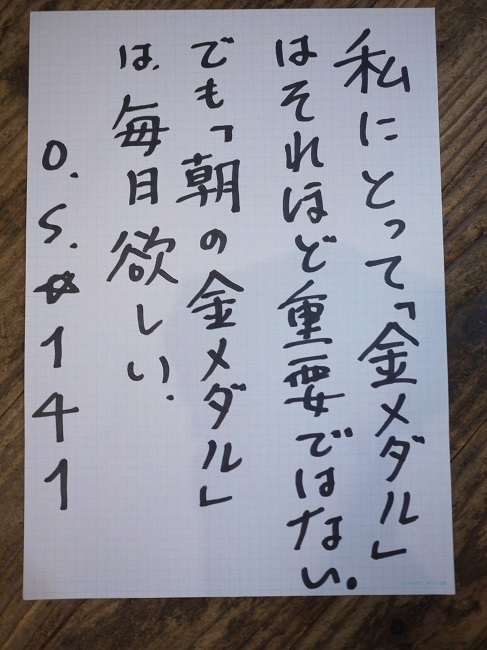 私にとって「金メダル」
はそれほど重要ではない。
でも「朝の金メダル」
は、毎日欲しい.
O.S.☆141